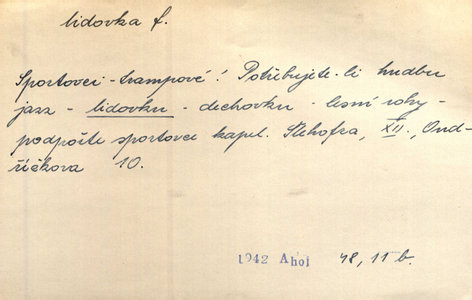 lidovka f.
Sportovci - trampové! Potřebujete-li hudbu
jazz - lidovku - dechovku - lesní rohy -
podpořte sportovce kapel. Klehofra, XII., Ond-
říčkova 10.
1942 Ahoj 48, 11 b.